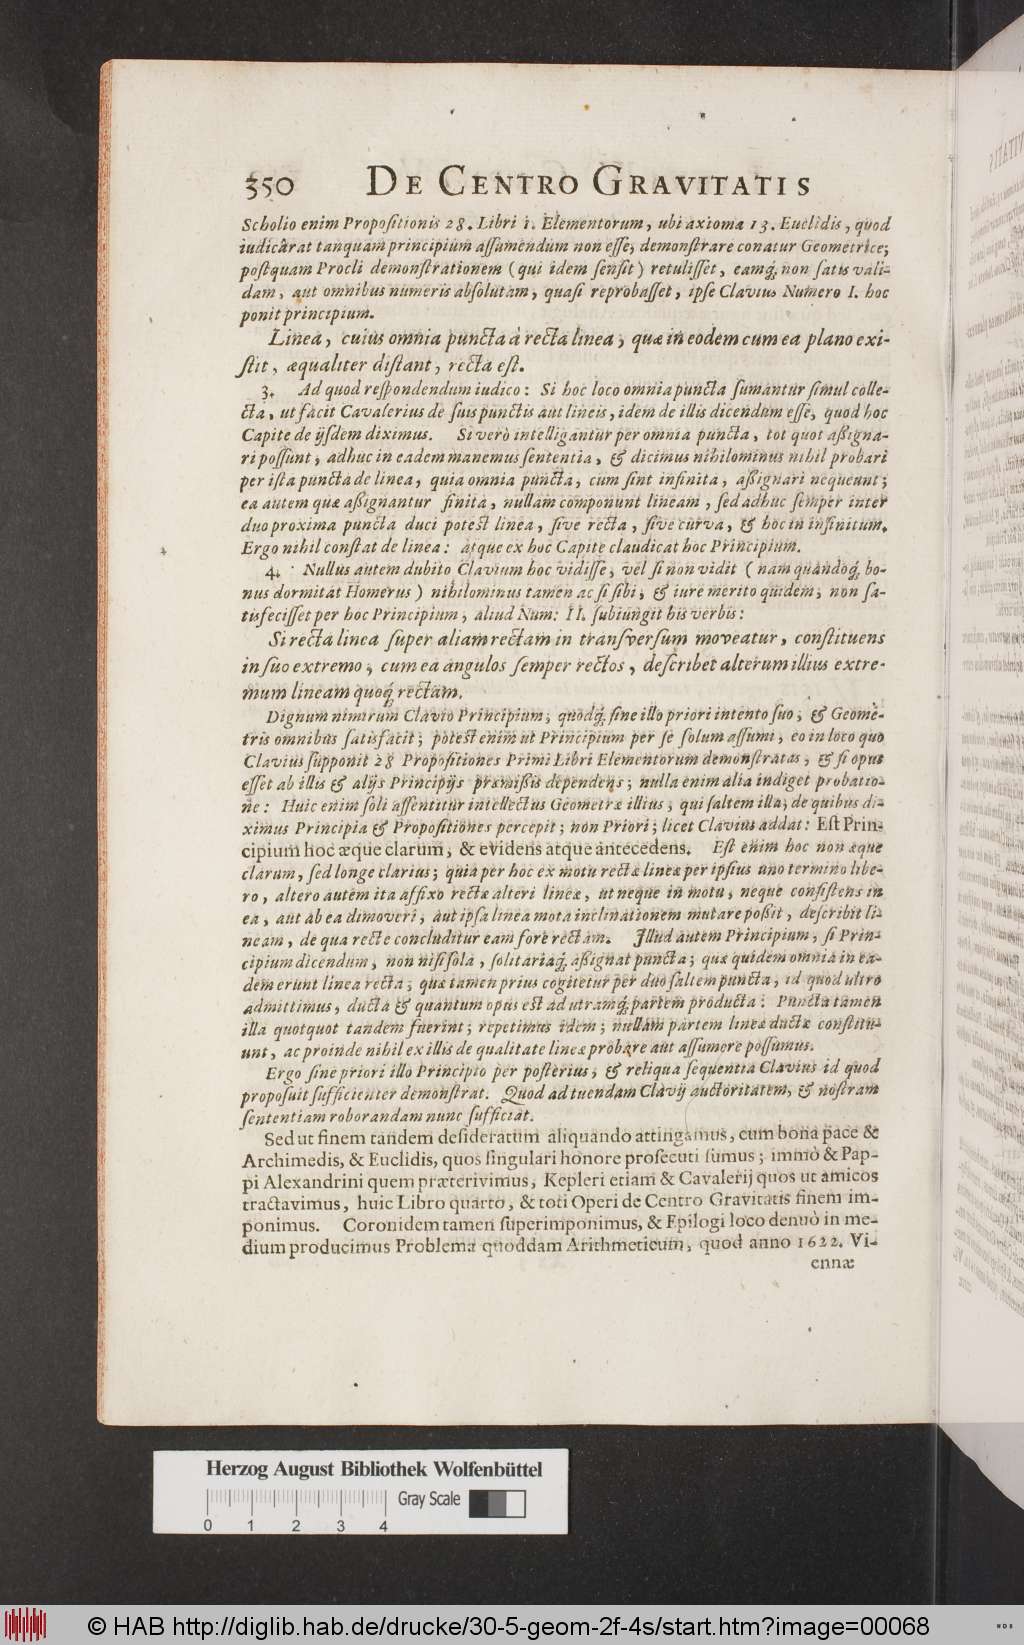 350 DE CENTRO GRAVITATIS
Scholio enim Propoſitionis 28. Libri 1. Elementorum, ubi axioma 13. Euclidis, quod
iudicârat tanquam principium aſſumendum non eſſe, demonſtrare conatur Geometrice;
poſtquam Procli demonſtrationem (qui idem ſenſit) retuliſſet, eamq́; non ſatis vali-
dam, aut omnibus numeris abſolutam, quaſi reprobaſſet, ipſe Clavius Numero I. hoc
ponit principium.
Linea, cuius omnia puncta à recta linea, quæ in eodem cum ea plano exi-
ſtit, æqualiter diſtant, recta eſt.
3. Ad quod reſpondendum iudico: Si hoc loco omnia puncta ſumantur ſimul colle-
cta, ut facit Cavalerius de ſuis punctis aut lineis, idem de illis dicendum eſſe, quod hoc
Capite de ijſdem diximus. Si verò intelligantur per omnia puncta, tot quot aßigna-
ri poſſunt, adhuc in eadem manemus ſententia, & dicimus nihilominus nihil probari
per iſta puncta de linea, quia omnia puncta, cum ſint infinita, aßignari nequeunt;
ea autem quæ aßignantur finita, nullam componunt lineam, ſed adhuc ſemper inter
duo proxima puncta duci poteſt linea, ſive recta, ſive curva, & hoc in infinitum.
Ergo nihil conſtat de linea: atque ex hoc Capite claudicat hoc Principium.
4. Nullus autem dubito Clavium hoc vidiſſe, vel ſi non vidit (nam quandoq́; bo-
nus dormitat Homerus) nihilominus tamen ac ſi ſibi, & iure merito quidem, non ſa-
tisfeciſſet per hoc Principium, aliud Num: II. ſubiungit his verbis:
Si recta linea ſuper aliam rectam in tranſverſum moveatur, conſtituens
in ſuo extremo, cum ea angulos ſemper rectos, deſcribet alterum illius extre-
mum lineam quoq́; rectam.
Dignum nimirum Clavio Principium, quodq́; ſine illo priori intento ſuo, & Geome-
tris omnibus ſatisfacit; poteſt enim ut Principium per ſe ſolum aſſumi, eo in loco quo
Clavius ſupponit 28 Propoſitiones Primi Libri Elementorum demonſtratas, & ſi opus
eſſet ab illis & alijs Principijs præmißis dependens; nulla enim alia indiget probatio-
ne: Huic enim ſoli aſſentitur intellectus Geometræ illius, qui ſaltem illa, de quibus di-
ximus Principia & Propoſitiones percepit; non Priori; licet Clavius addat: Eſt Prin-
cipium hoc æque clarum, & evidens atque antecedens. Eſt enim hoc non æque
clarum, ſed longe clarius; quia per hoc ex motu rectæ lineæ per ipſius uno termino libe-
ro, altero autem ita affixo rectæ alteri lineæ, ut neque in motu, neque conſiſtens in
ea, aut ab ea dimoveri, aut ipſa linea mota inclinationem mutare poßit, deſcribit li-
neam, de qua recte concluditur eam fore rectam. Illud autem Principium, ſi Prin-
cipium dicendum, non niſi ſola, ſolitariaq́; aßignat puncta; quæ quidem omnia in ea-
dem erunt linea recta; quæ tamen prius cogitetur per duo ſaltem puncta, id quod ultro
admittimus, ducta & quantum opus eſt ad utramq́; partem producta: Puncta tamen
illa quotquot tandem fuerint; repetimus idem; nullam partem lineæ ductæ conſtitu-
unt, ac proinde nihil ex illis de qualitate lineæ probare aut aſſumere poſſumus.
Ergo ſine priori illo Principio per poſterius, & reliqua ſequentia Clavius id quod
propoſuit ſufficienter demonſtrat. Quod ad tuendam Clavij auctoritatem, & noſtram
ſententiam roborandam nunc ſufficiat.
Sed ut finem tandem deſideratum aliquando attingamus, cum bona pace &
Archimedis, & Euclidis, quos ſingulari honore proſecuti ſumus; immò & Pap-
pi Alexandrini quem præterivimus, Kepleri etiam & Cavalerij quos ut amicos
tractavimus, huic Libro quarto, & toti Operi de Centro Gravitatis finem im-
ponimus. Coronidem tamen ſuperimponimus, & Epilogi loco denuò in me-
dium producimus Problema quoddam Arithmeticum, quod anno 1622. Vi-
ennæ
Herzog August Bibliothek Wolfenbüttel
0 1 2 3 4 Gray Scale
© HAB http://diglib.hab.de/drucke/30-5-geom-2f-4s/start.htm?image=00068